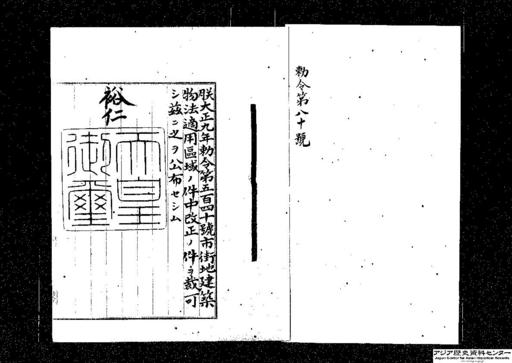 勅令第八十號
朕大正九年勅令第五百四十號市街地建築
物法適用區域ノ件中改正ノ件ヲ裁可
シ茲ニ之ヲ公布セシム
裕仁
天皇
御璽
アジア歴史資料センター
Japan Center for Asian Historical Records